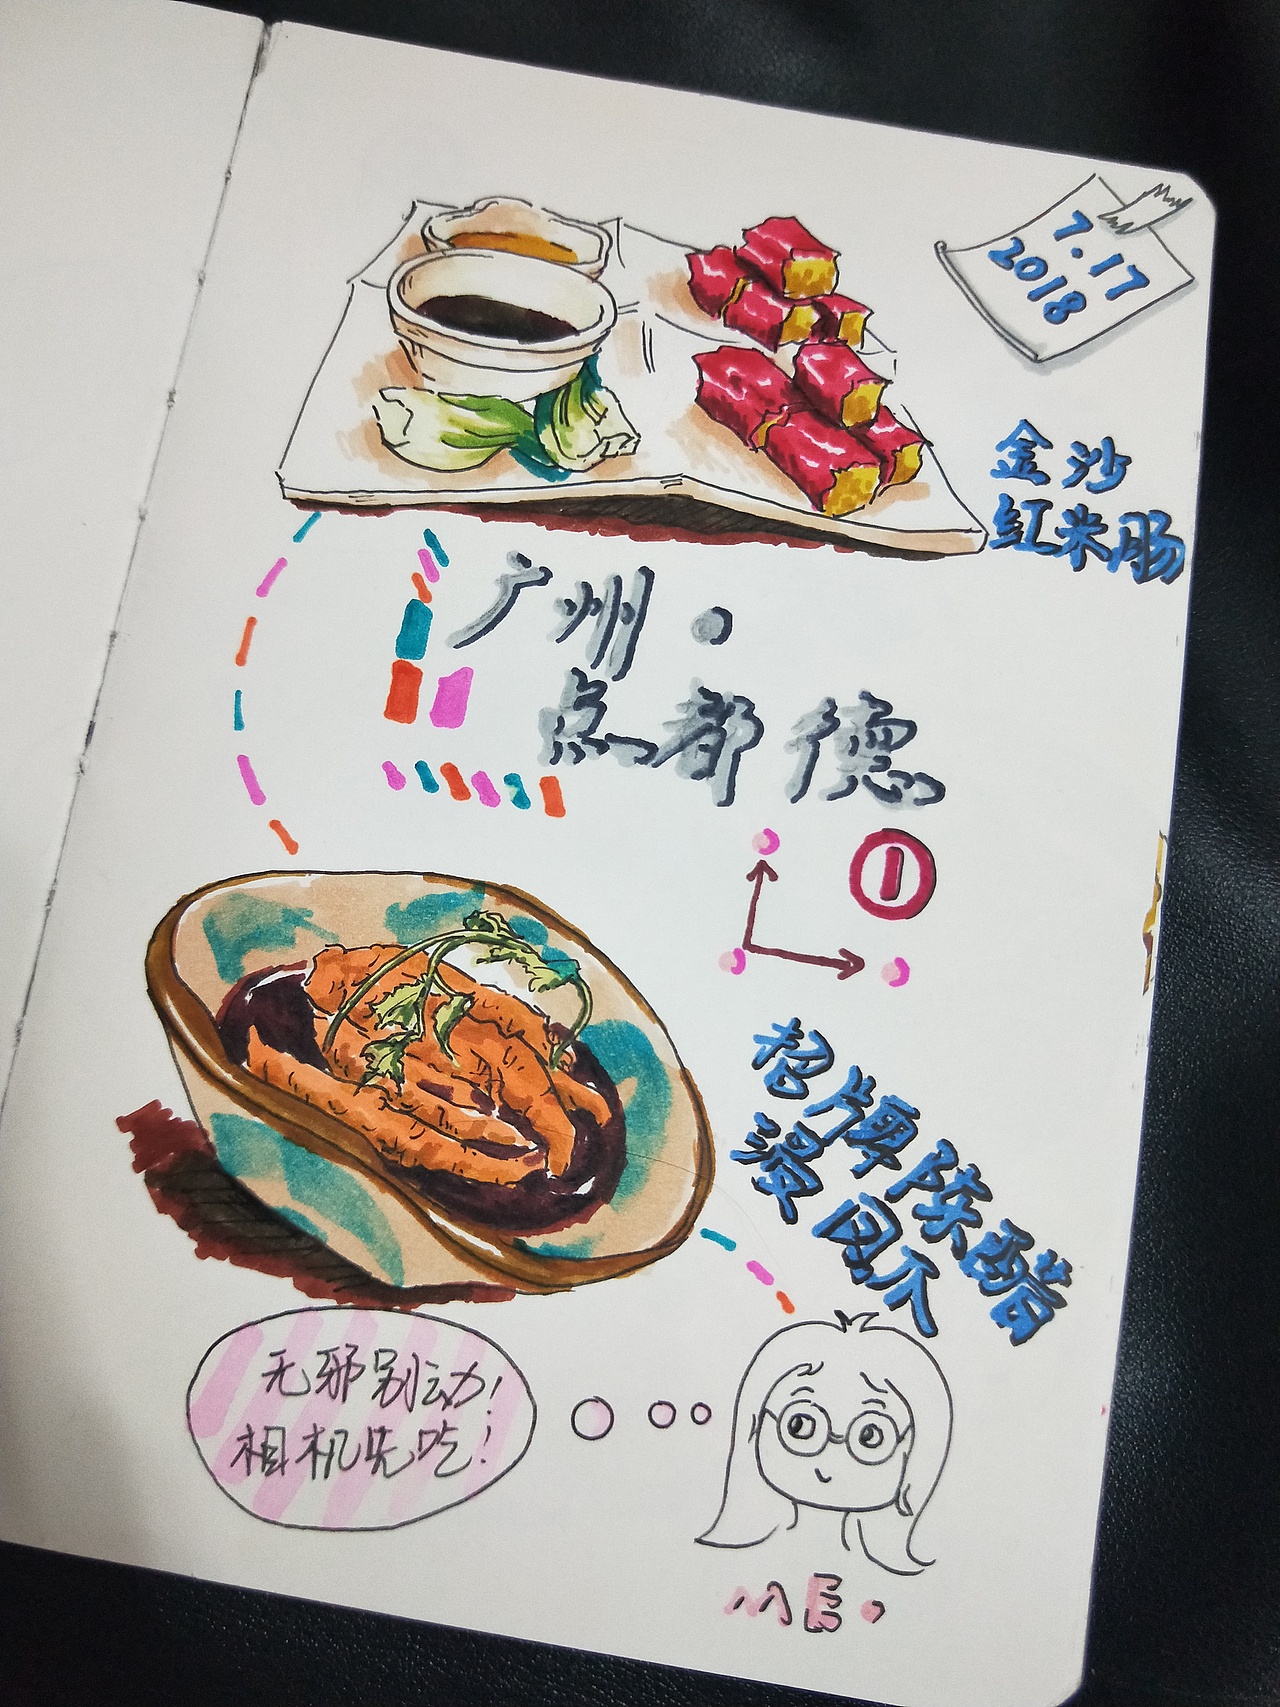 7.17
2018
金沙
红米肠
广州·
点都德
①
招牌陈醋
浸凤爪
无邪别动!
相机先吃!
ME.